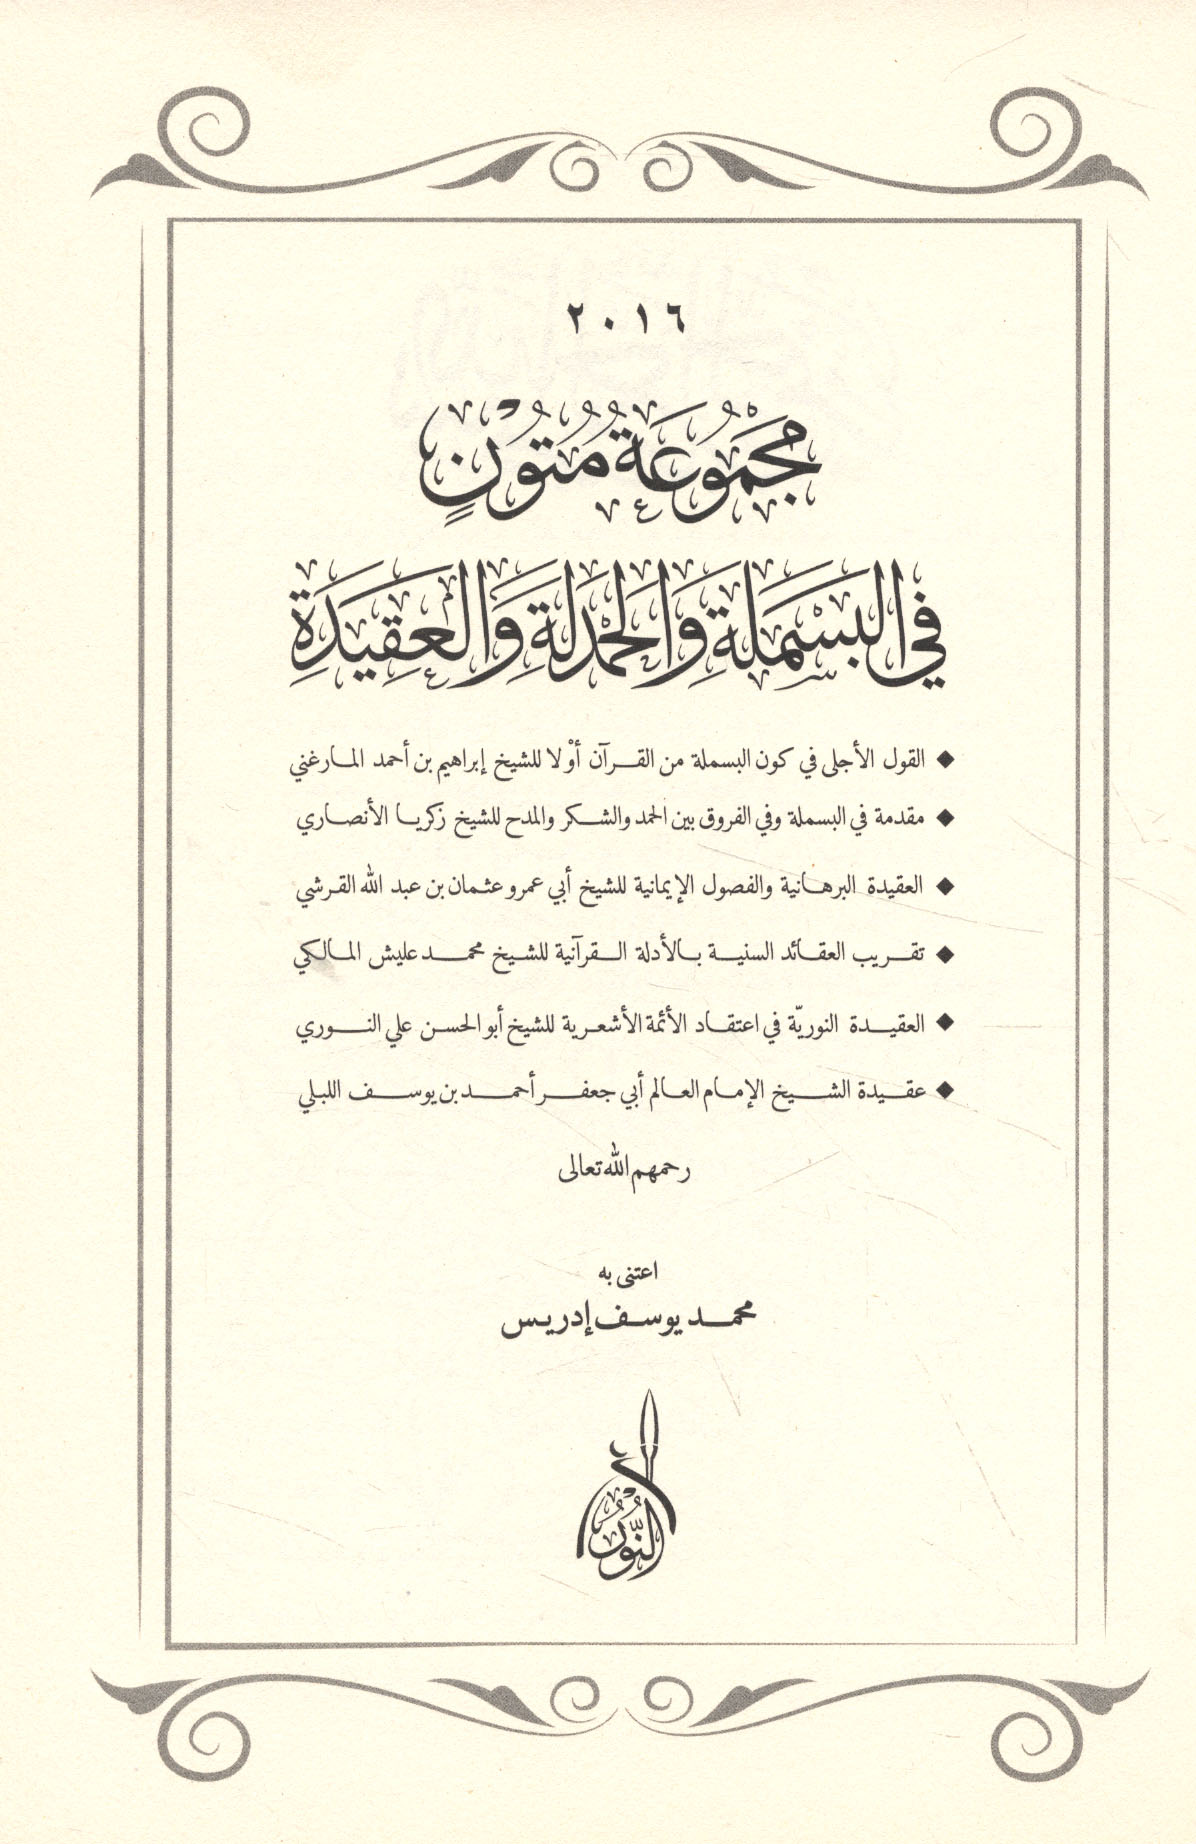 ٢٠١٦
مَجْمُوعَةُ مُتُوْنٍ
فِي البَسْمَلَةِ وَالحَمْدَلَةِ وَالعَقِيدَةِ
◆ القول الأجلى في كون البسملة من القرآن أوْلا للشيخ إبراهيم بن أحمد المارغني
◆ مقدمة في البسملة وفي الفروق بين الحمد والشكر والمدح للشيخ زكريا الأنصاري
◆ العقيدة البرهانية والفصول الإيمانية للشيخ أبي عمرو عثمان بن عبد الله القرشي
◆ تقريب العقائد السنية بالأدلة القرآنية للشيخ محمد عليش المالكي
◆ العقيدة النوريّة في اعتقاد الأئمة الأشعرية للشيخ أبو الحسن علي النوري
◆ عقيدة الشيخ الإمام العالم أبي جعفر أحمد بن يوسف اللبلي
رحمهم الله تعالى
اعتنى به
محمد يوسف إدريس
النُّوْرُ